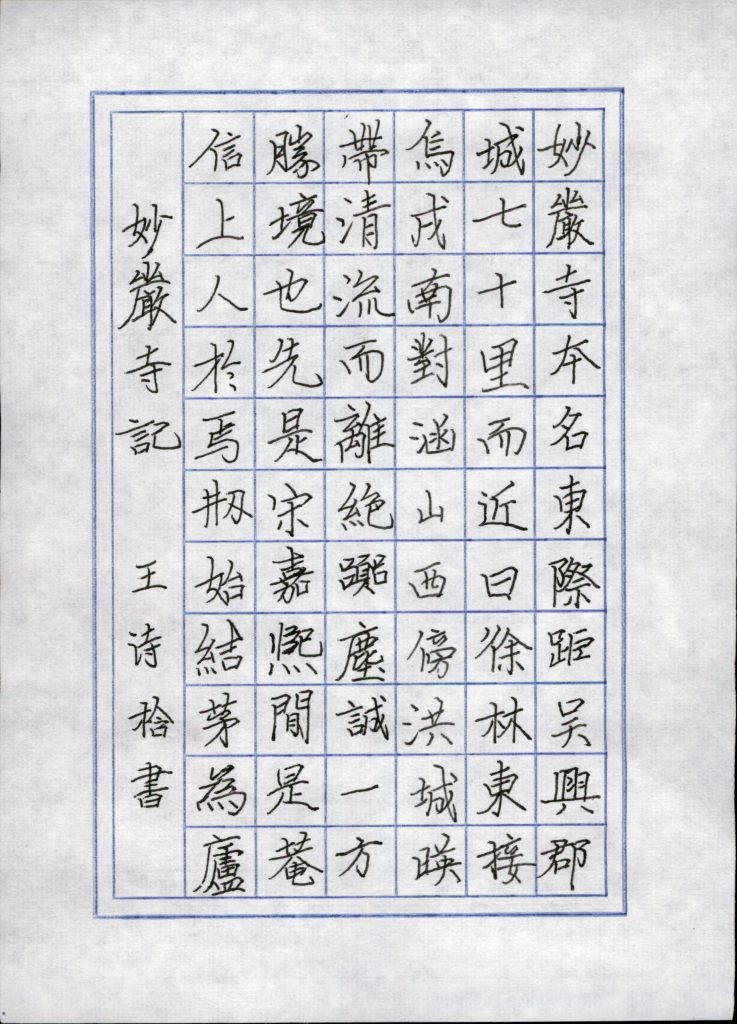 妙嚴寺本名東際距吴興郡
城七十里而近曰徐林東接
烏戍南對涵山西傍洪城暎
帶清流而離絶躑塵誠一方
勝境也先是宋嘉熈閒是菴
信上人於焉刱始結茅為廬
妙嚴寺記 王诗桧書